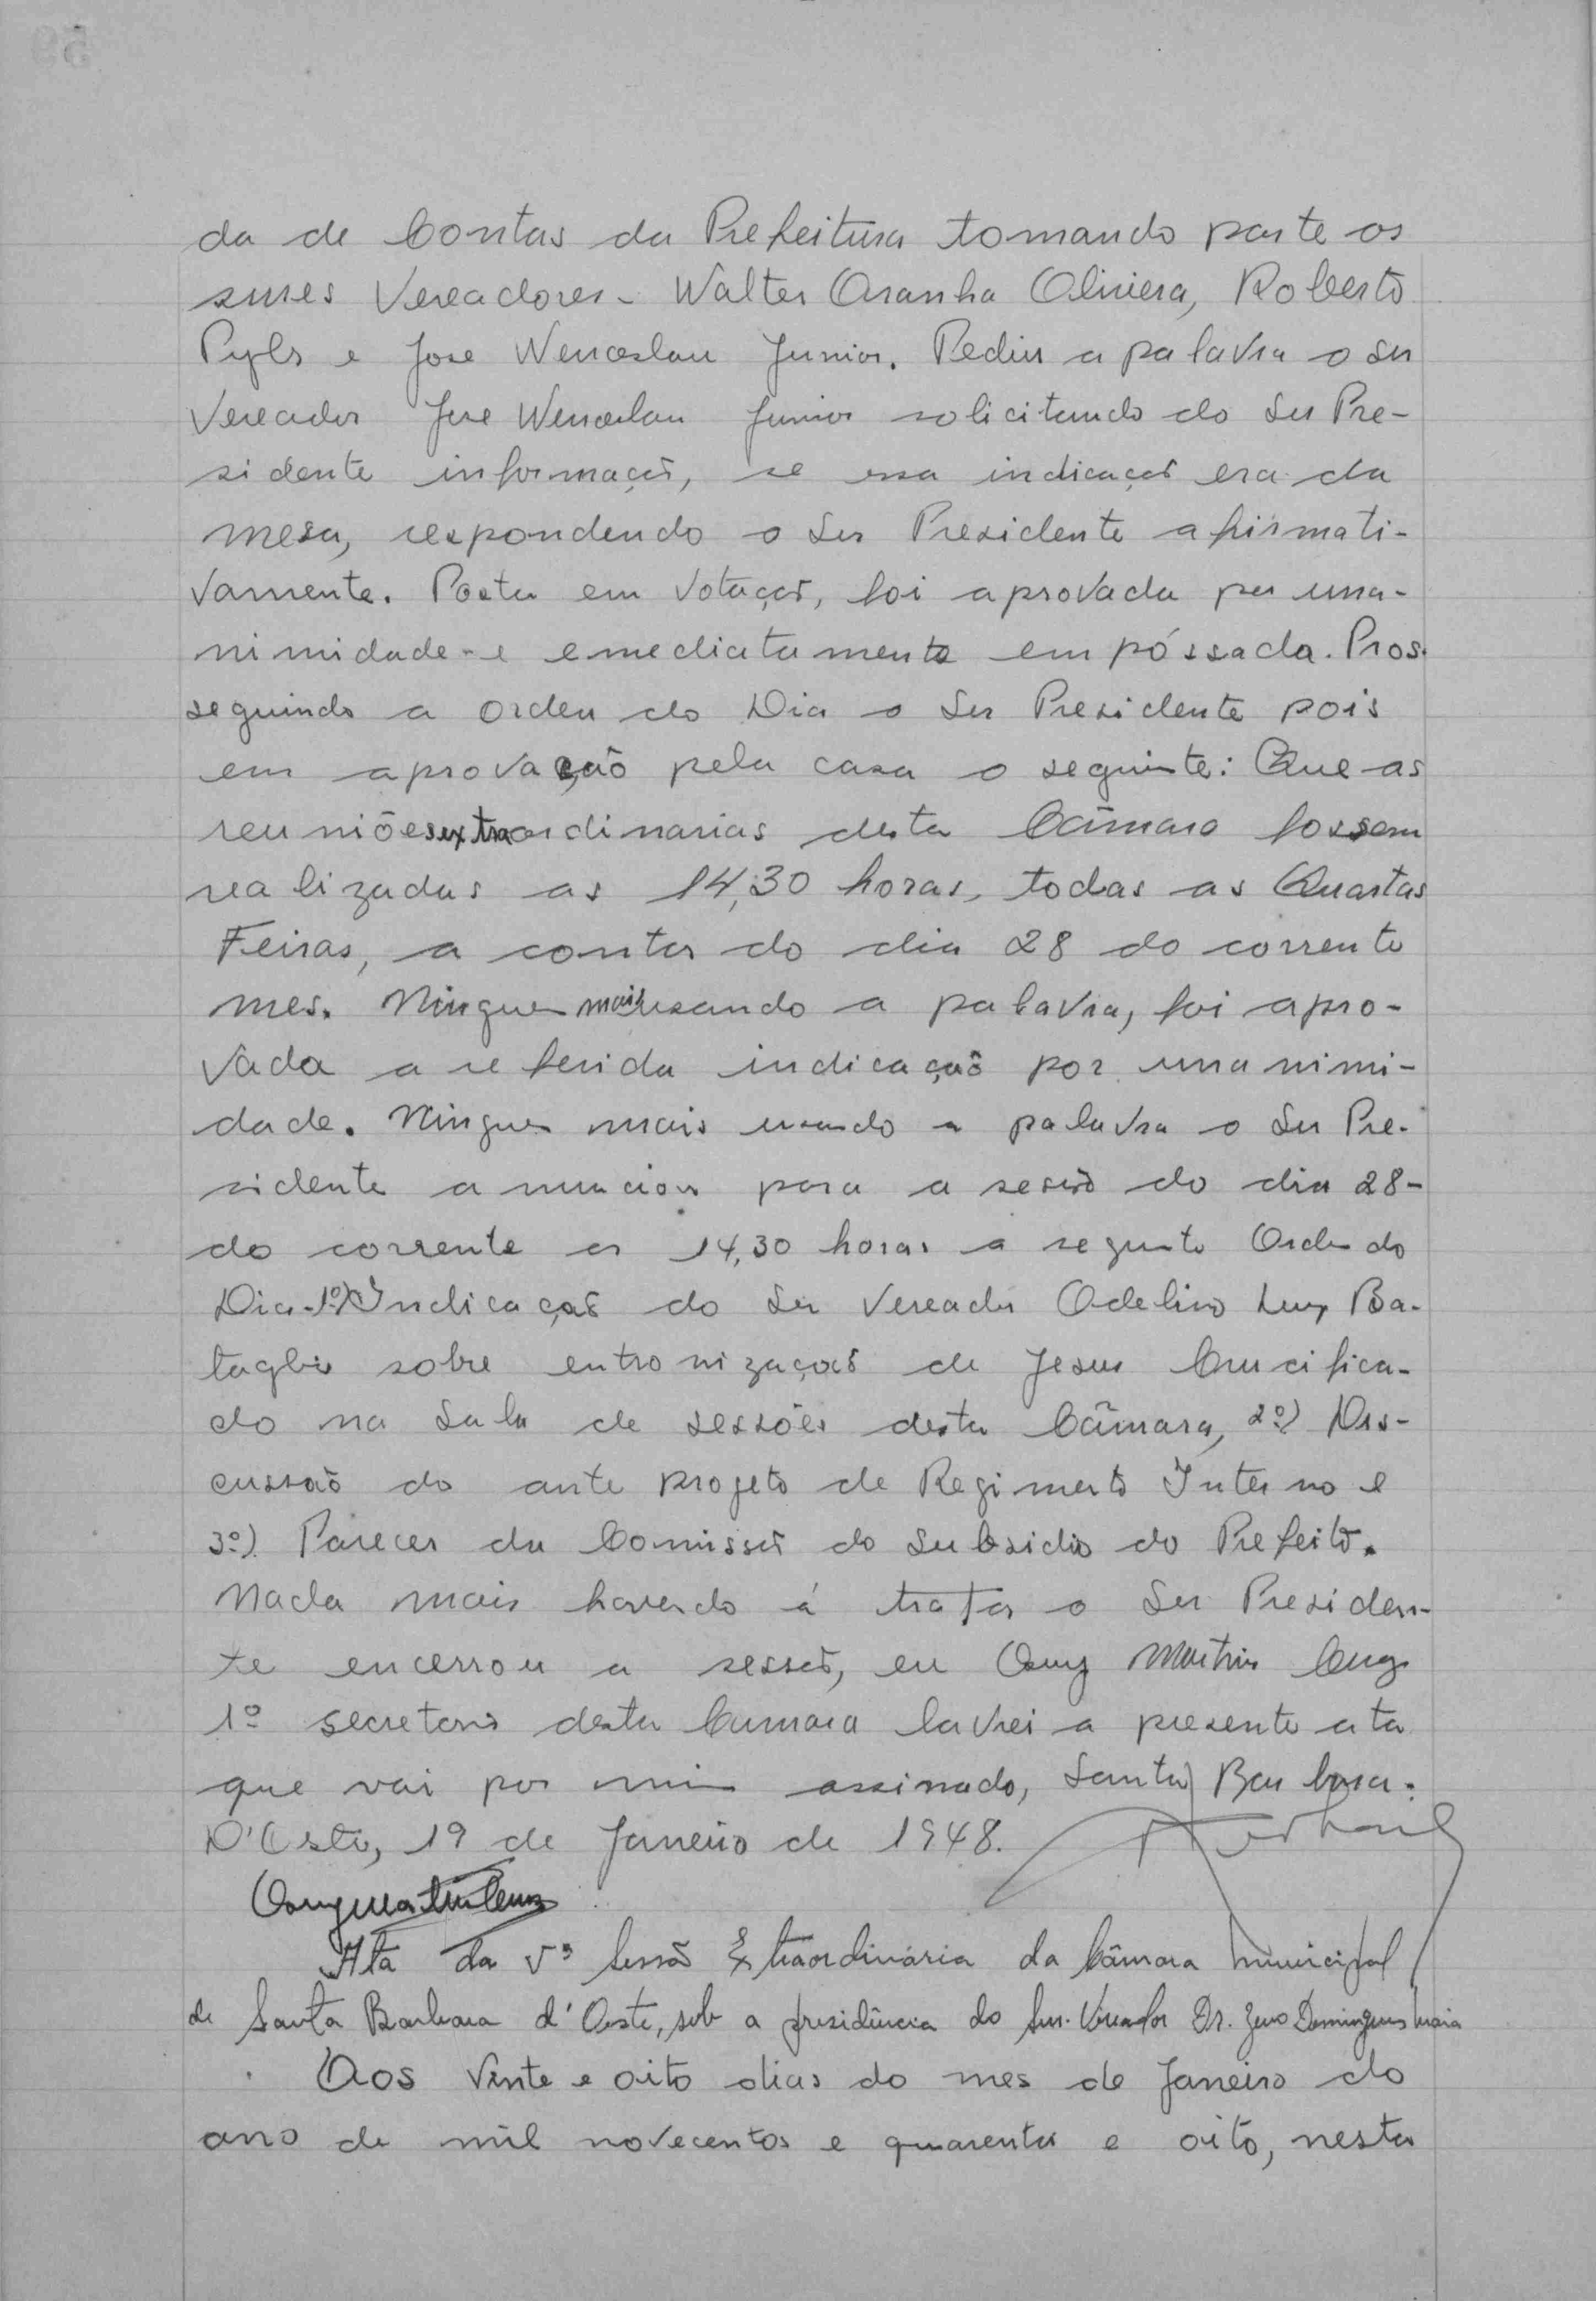 da de Contas da Prefeitura tomando parte os
snres Vereadores - Walter Aranha Oliviera, Roberto
Pyles e Jose Wenceslau Junior. Pediu a palavra o Snr
Vereador Jose Wenceslau Junior solicitando do Snr Pre-
sidente informação, se essa indicação era da
mesa, respondendo o Snr Presidente afirmati-
vamente. Posta em votação, foi aprovada por una-
nimidade - e emediatamente empóssada. Pros-
seguindo a Ordem do Dia o Snr Presidente pois
em aprovação pela casa o seguinte: Que as
reuniões extraordinarias desta Câmara fossem
realizadas as 14,30 horas, todas as Quartas
Feiras, a contar do dia 28 do corrente
mes. Ninguem mais usando a palavra, foi apro-
vada a referida indicação por unanimi-
dade. Ninguem mais usando a palavra o Snr Pre-
sidente anunciou para a sessão do dia 28 -
do corrente as 14,30 horas a seguinte Ordem do
Dia - 1º) Indicação do Snr Vereador Odelino Luiz Ba-
taglia sobre entronização de Jesus Crucifica-
do na Sala de sessões desta Câmara, 2º) Dis-
cussão do ante projeto de Regimento Interno e
3º) Parecer da Comissão do Subsidio do Prefeito.
Nada mais havendo á tratar o Snr Presiden-
te encerrou a sessão, eu Martins Cruz
1º secretario desta Camara lavrei a presente ata
que vai por mim assinado, Santa Barbara.
D'Oeste, 19 de Janeiro de 1948.
Ata da Vª Sessão Extraordinária da Câmara Municipal
de Santa Barbara d'Oeste, sob a presidência do Snr. Vereador Dr. Zeno Domingues Maia
Aos Vinte e oito dias do mes de Janeiro do
ano de mil novecentos e quarenta e oito, nesta